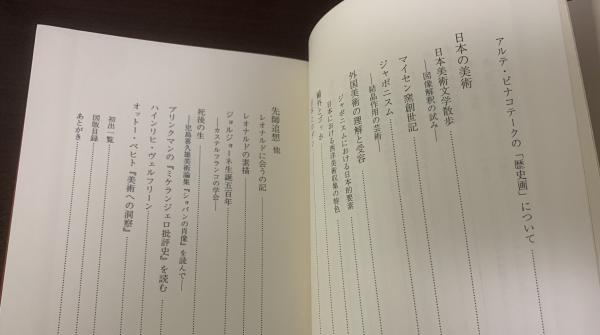 アルテ・ピナコテークの「歴史画」について
日本の美術
日本美術文学散歩
――図像解釈の試み――
マイセン窯創世記
ジャポニスム
――結晶作用の芸術――
外国美術の理解と受容
ジャポニスムにおける日本的要素
日本における西洋美術収集の特色
先師追想 他
レオナルドに会うの記
レオナルドの素描
ジョルジョーネ生誕五百年
――カステルフランコの学会――
死後の生
――児島喜久雄美術論集『ショパンの肖像』を読んで――
ブリンクマンの『ミケランジェロ批評史』を読む
ハインリヒ・ヴェルフリーン
オットー・ペヒト『美術への洞察』
初出一覧
図版目録
あとがき